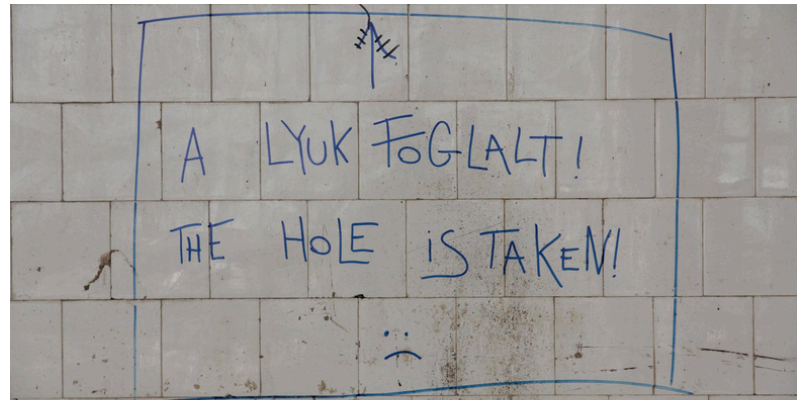 A LYUK FOGLALT!
THE HOLE IS TAKEN!